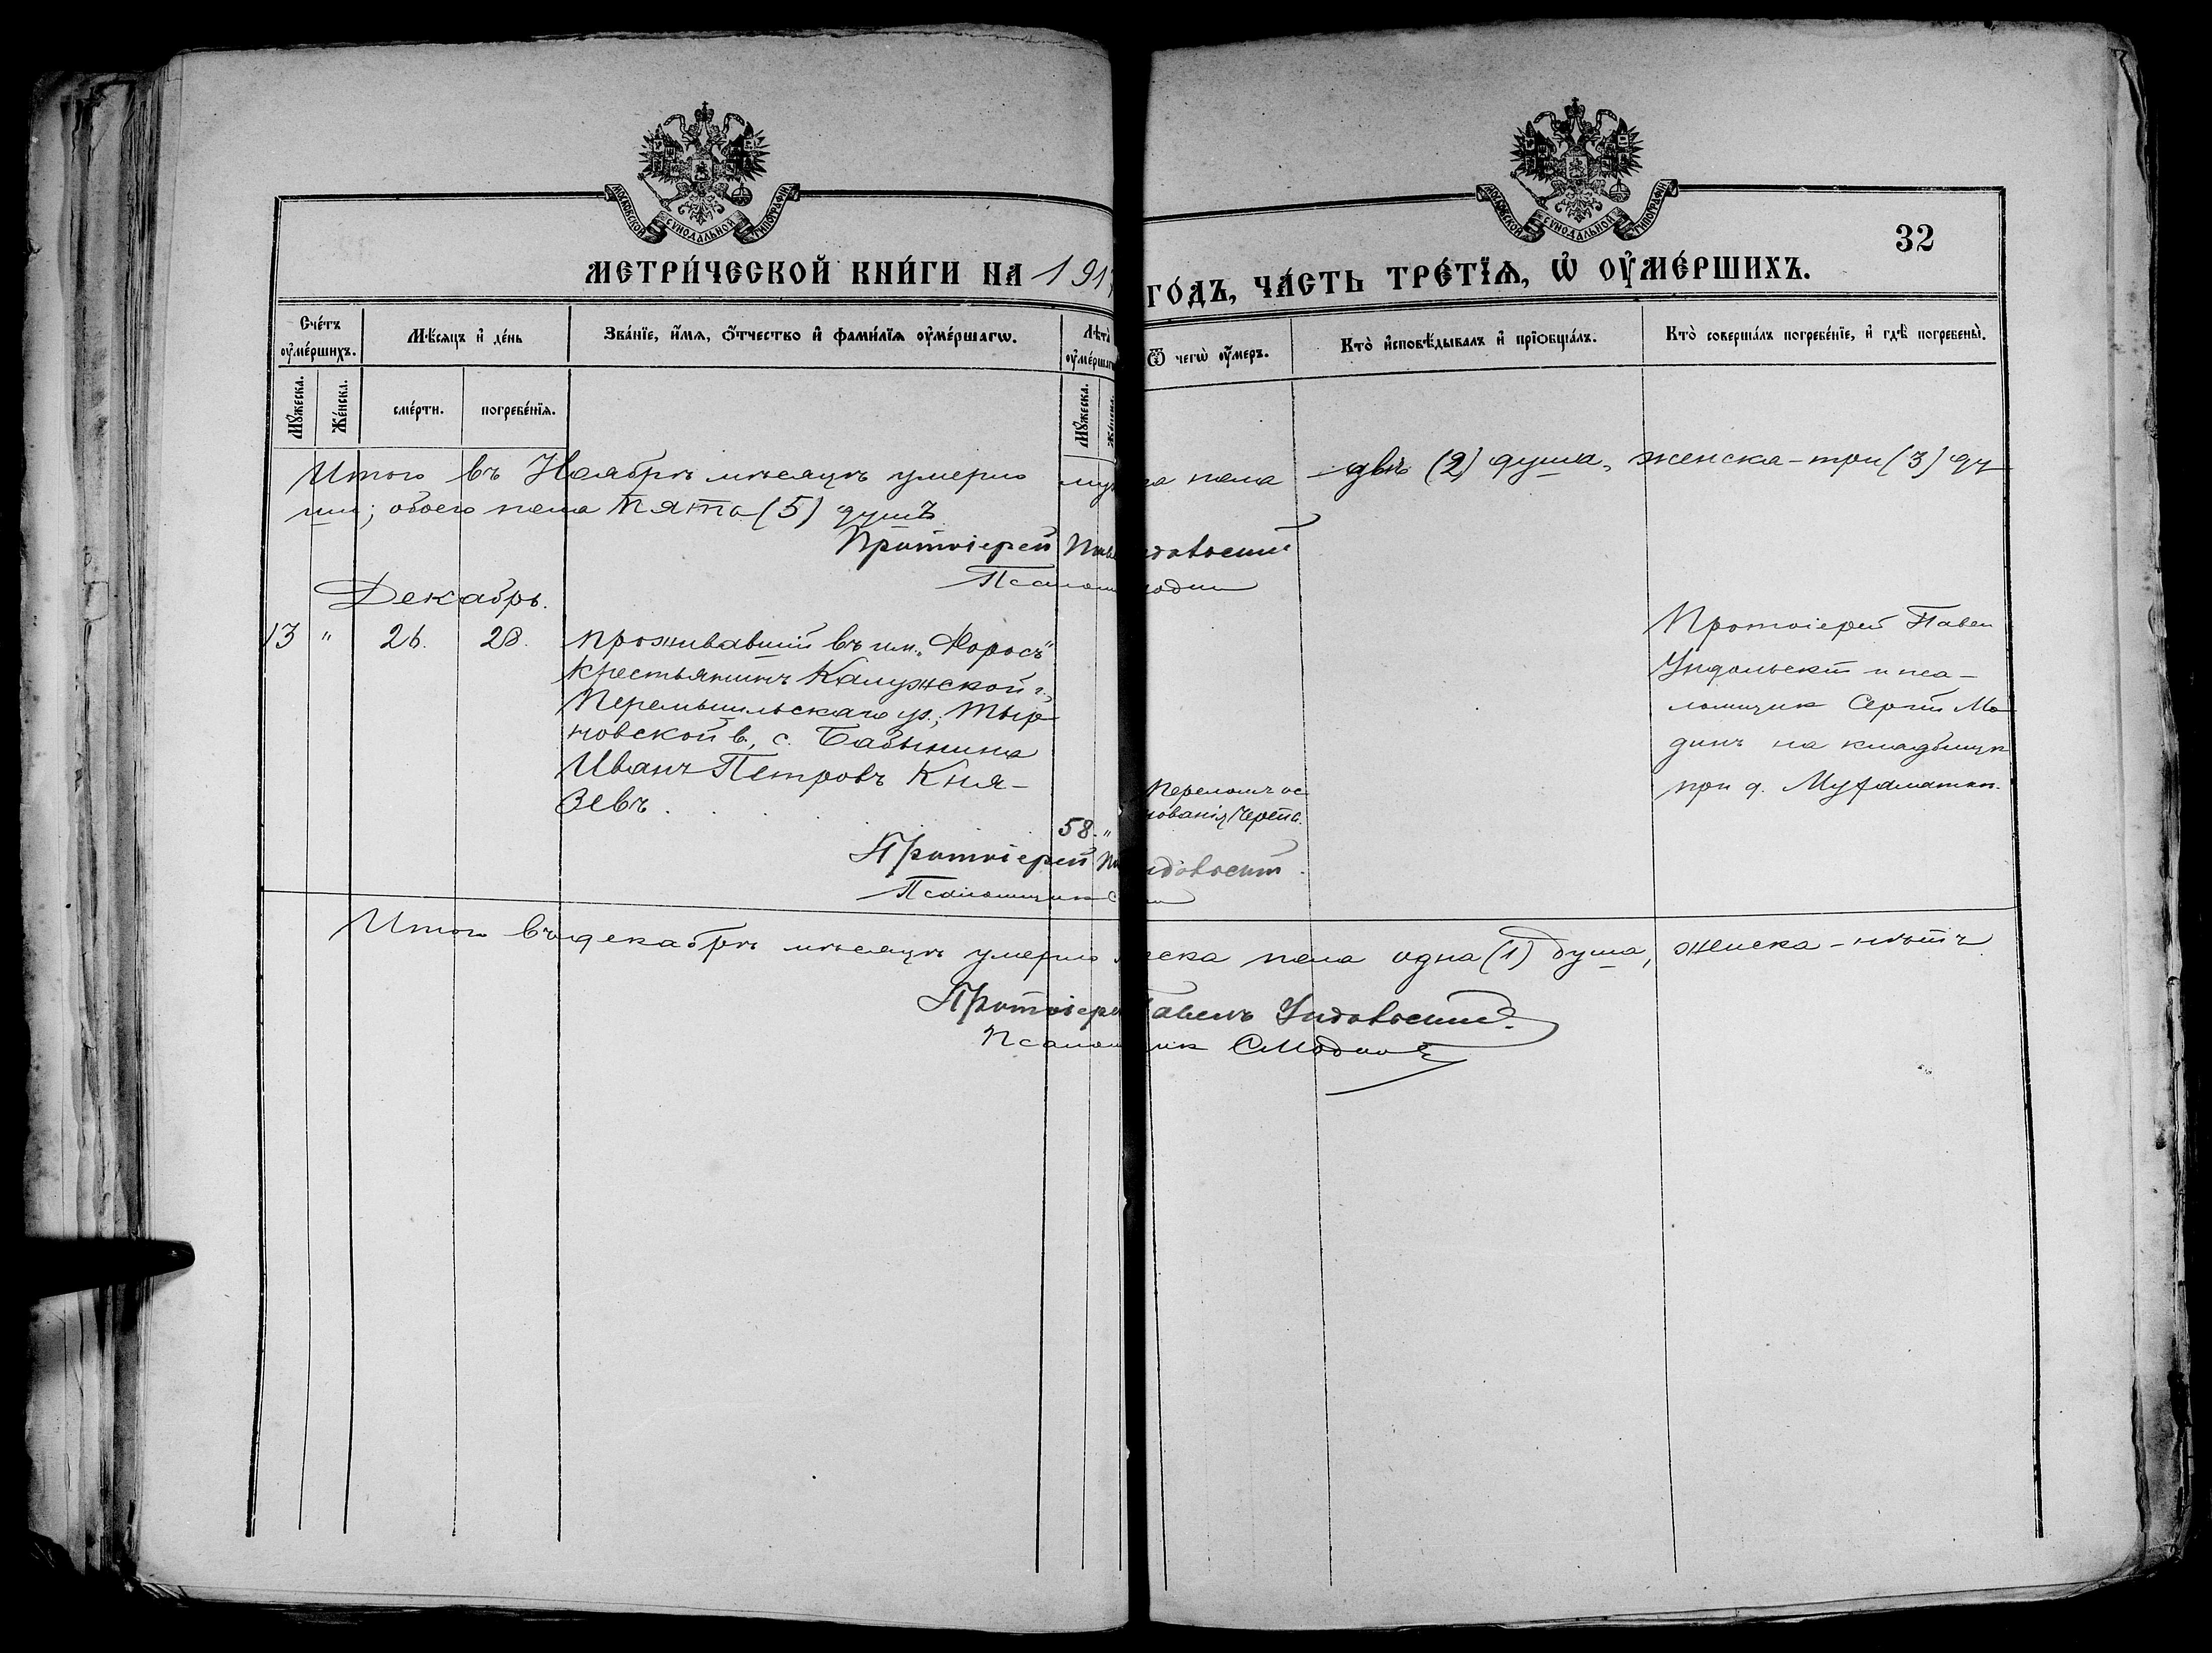 МОСКОВСКОЙ СѴНОДАЛЬНОЙ ТИПОГРАФІИ
МОСКОВСКОЙ СѴНОДАЛЬНОЙ ТИПОГРАФІИ
32
МЕТРИ́ЧЕСКОЙ КНИ́ГИ НА 191
ГО́ДЪ, ЧА́СТЬ ТРЕ́ТЇѦ, Ѡ҆ ОУ҆МЕ́РШИХЪ.
Сче́тъ оу҆ме́ршихъ.
Мѣ́сяцъ и҆ де́нь
Зва́нїе, и҆́мѧ, ѻ҆́тчество и҆ фами́лїѧ оу҆ме́ршагѡ.
Лѣ́та̀ оу҆ме́ршаг
Ѿ чегѡ̀ оу҆́меръ.
Кто̀ и҆сповѣ́дывалъ и҆ прїѻбща́лъ.
Кто̀ соверша́лъ погребе́нїе, и҆ гдѣ̀ погребены̀.
Мꙋ́жеска.
Же́нска.
сме́рти.
погребе́нїѧ.
Мꙋ́жеска.
Же́нска.
Итого въ Ноябрѣ мѣсяцѣ умерло му ка пола двѣ (2) души, женска - три (3) ду
ши; обоего пола пять (5) душъ.
Протоіерей Па довскій
Псалом один
Декабрь.
13 " 26. 28. проживавшій въ им. „Форосъ"
крестьянинъ Калужской г.,
Перемышльскаго у., Тыр-
новской в., с. Бабынина
Иванъ Петровъ Кня-
зевъ.
58. "
Переломъ ос
нованія черепа.
Протоіерей Павел
Ундольскій и пса-
ломщик Сергій Мо
динъ на кладбищѣ
при д. Мухалатки.
Протоіерей Па дольскій.
Псаломщик С
Итого въ декабрѣ мѣсяцѣ умерло жеска пола одна (1) душа, женска - нѣтъ
Протоіере Павелъ Ундольскій.
Псалом щик С Модин